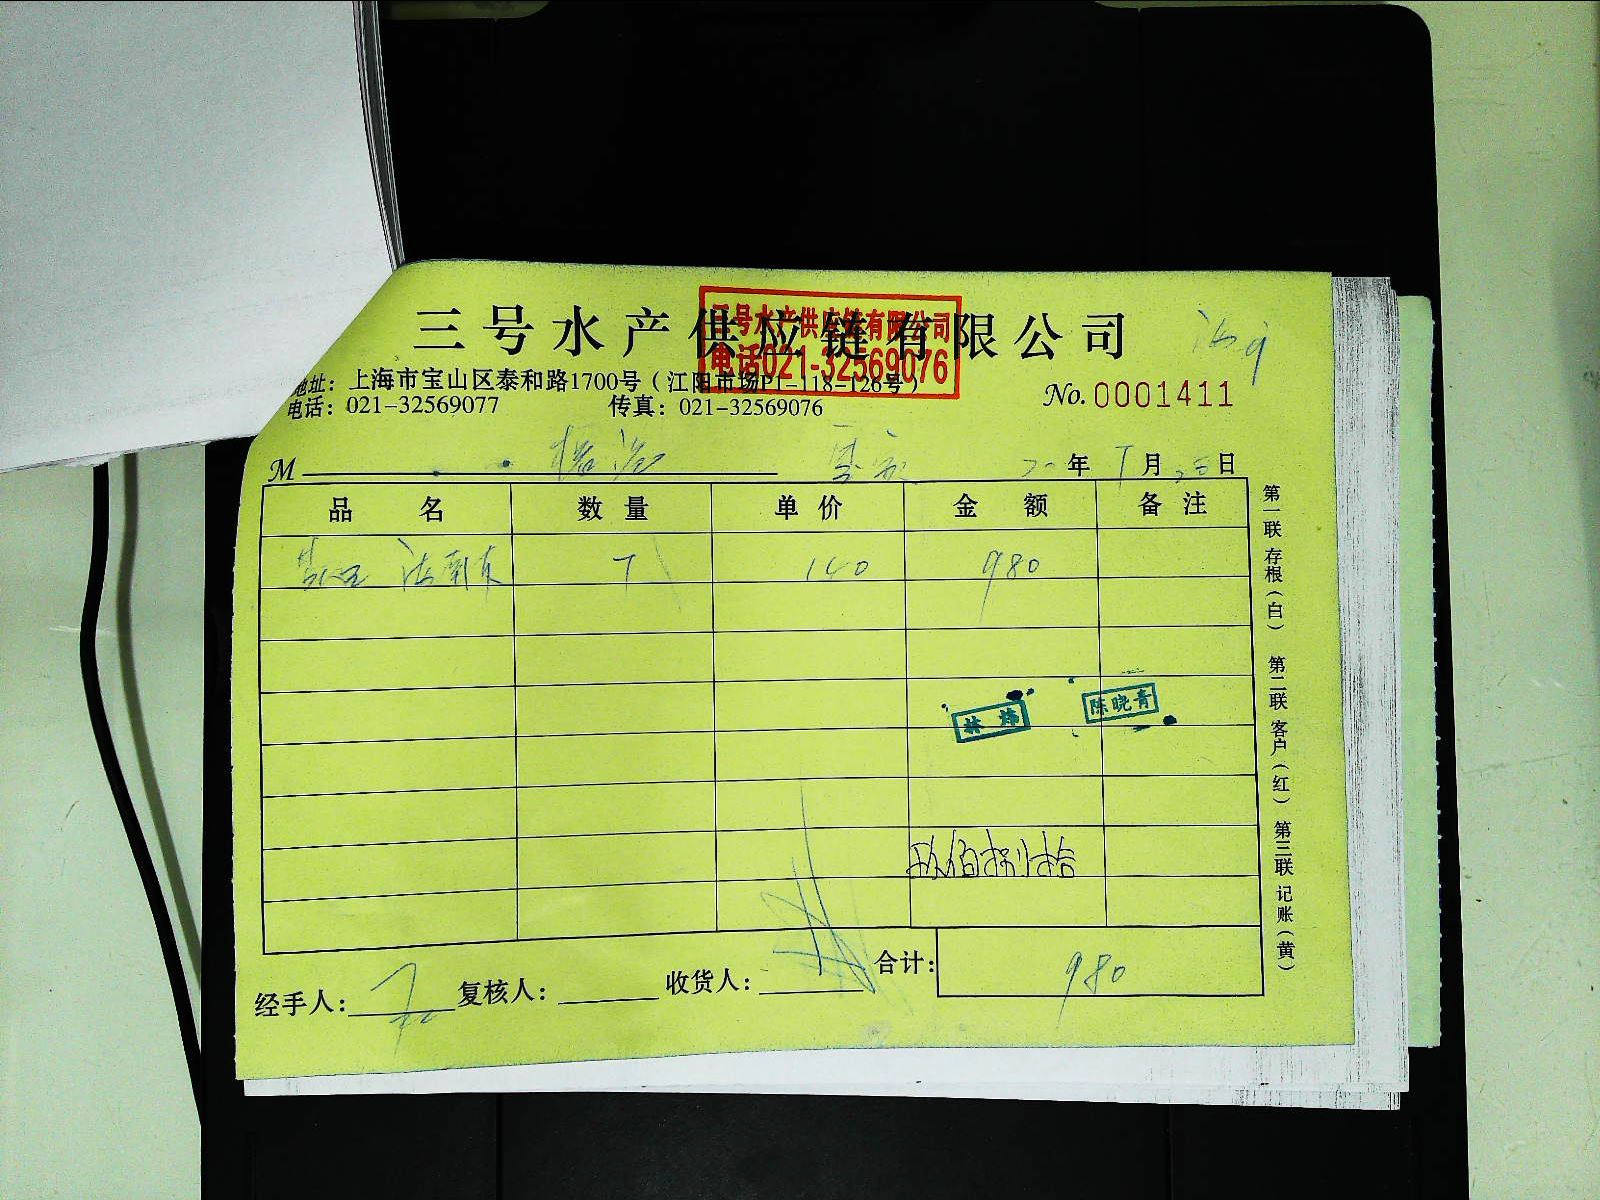 三号水产供应链有限公司
三号水产供应链有限公司
电话021-32569076
地址：上海市宝山区泰和路1700号（江阳市场P1-118-126号）
电话：021-32569077 传真：021-32569076
No.0001411
M 年 月 日
品名 数量 单价 金额 备注
7 140 980
林炜 陈晓青
玖佰捌拾
经手人： 复核人： 收货人： 合计： 980
第一联 存根（白） 第二联 客户（红） 第三联 记账（黄）